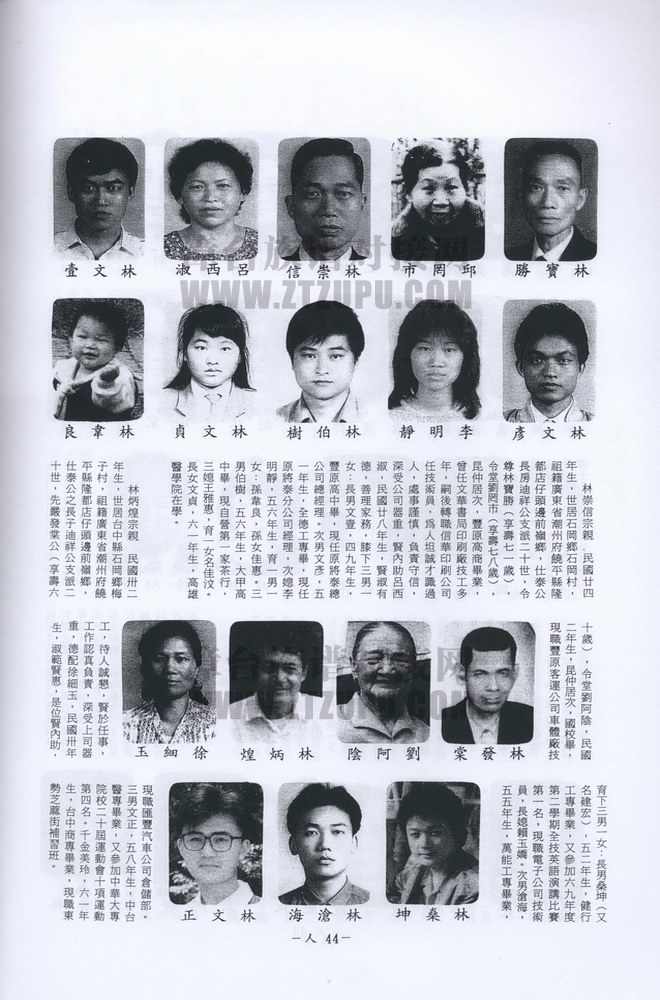 林寶勝
邱罔市
林崇信
呂西淑
林文壹
林文彥
李明靜
林伯樹
林文貞
林韋良
WWW.ZTZUPU.COM
林崇信宗親，民國廿四
年生，世居石岡鄉石岡村，
祖籍廣東省潮州府饒平縣隆
都店仔頭邊前嶺鄉，仕泰公
長房迪祥公支派二十世，令
尊林寶勝（享壽七一歲），
令堂劉罔市（享壽七八歲），
昆仲居次，豐原高商畢業，
曾任文華書局印刷廠技工多
年，嗣後轉職信華印刷公司
任技術員，爲人坦誠才識過
人，處事謹慎，負責守信，
深受公司器重，賢內助呂西
淑，民國廿八年生，賢淑有
德，善理家務，膝下三男一
女：長男文壹，四九年生，
豐原高中畢，現任原將泰總
公司總經理。次男文彥，五
一年生，全德工專畢，現任
原將泰分公司經理，次媳李
明靜，五六年生，育一男一
女：孫韋良，孫女佳惠。三
男伯樹，五六年生，大甲高
中畢，現自營第一家茶行，
三媳王雅惠，育一女名佳汶。
長女文貞，六一年生，高雄
醫學院在學。
林炳煌宗親，民國卅二
年生，世居台中縣石岡鄉梅
子村，祖籍廣東省潮州府饒
平縣隆都店仔頭邊前嶺鄉，
仕泰公之長子迪祥公支派二
十世，先嚴發業公（享壽六
十歲），令堂劉阿陰，民國
二年生，昆仲居次，國校畢，
現職豐原客運公司車體廠技
林發棠
劉阿陰
林炳煌
徐細玉
WWW.ZTZUPU.COM
工，待人誠懇，賢於任事，
工作認真負責，深受上司器
重，德配徐細玉，民國卅年
生，淑範賢惠，是位賢內助，
育下三男一女：長男燊坤（又
名建宏），五二年生，健行
工專畢業，又參加六九年度
第二學期全技英語演講比賽
第一名，現職電子公司技術
員，長媳賴玉嬌。次男滄海，
五五年生，萬能工專畢業，
林燊坤
林滄海
林文正
現職匯豐汽車公司倉儲部。
三男文正，五八年生，中台
醫專畢業，又參加中華大專
院校二十屆運動會十項運動
第四名。千金美玲，六一年
生，台中商專畢業，現職東
勢芝蔴街補習班。
－人 44－